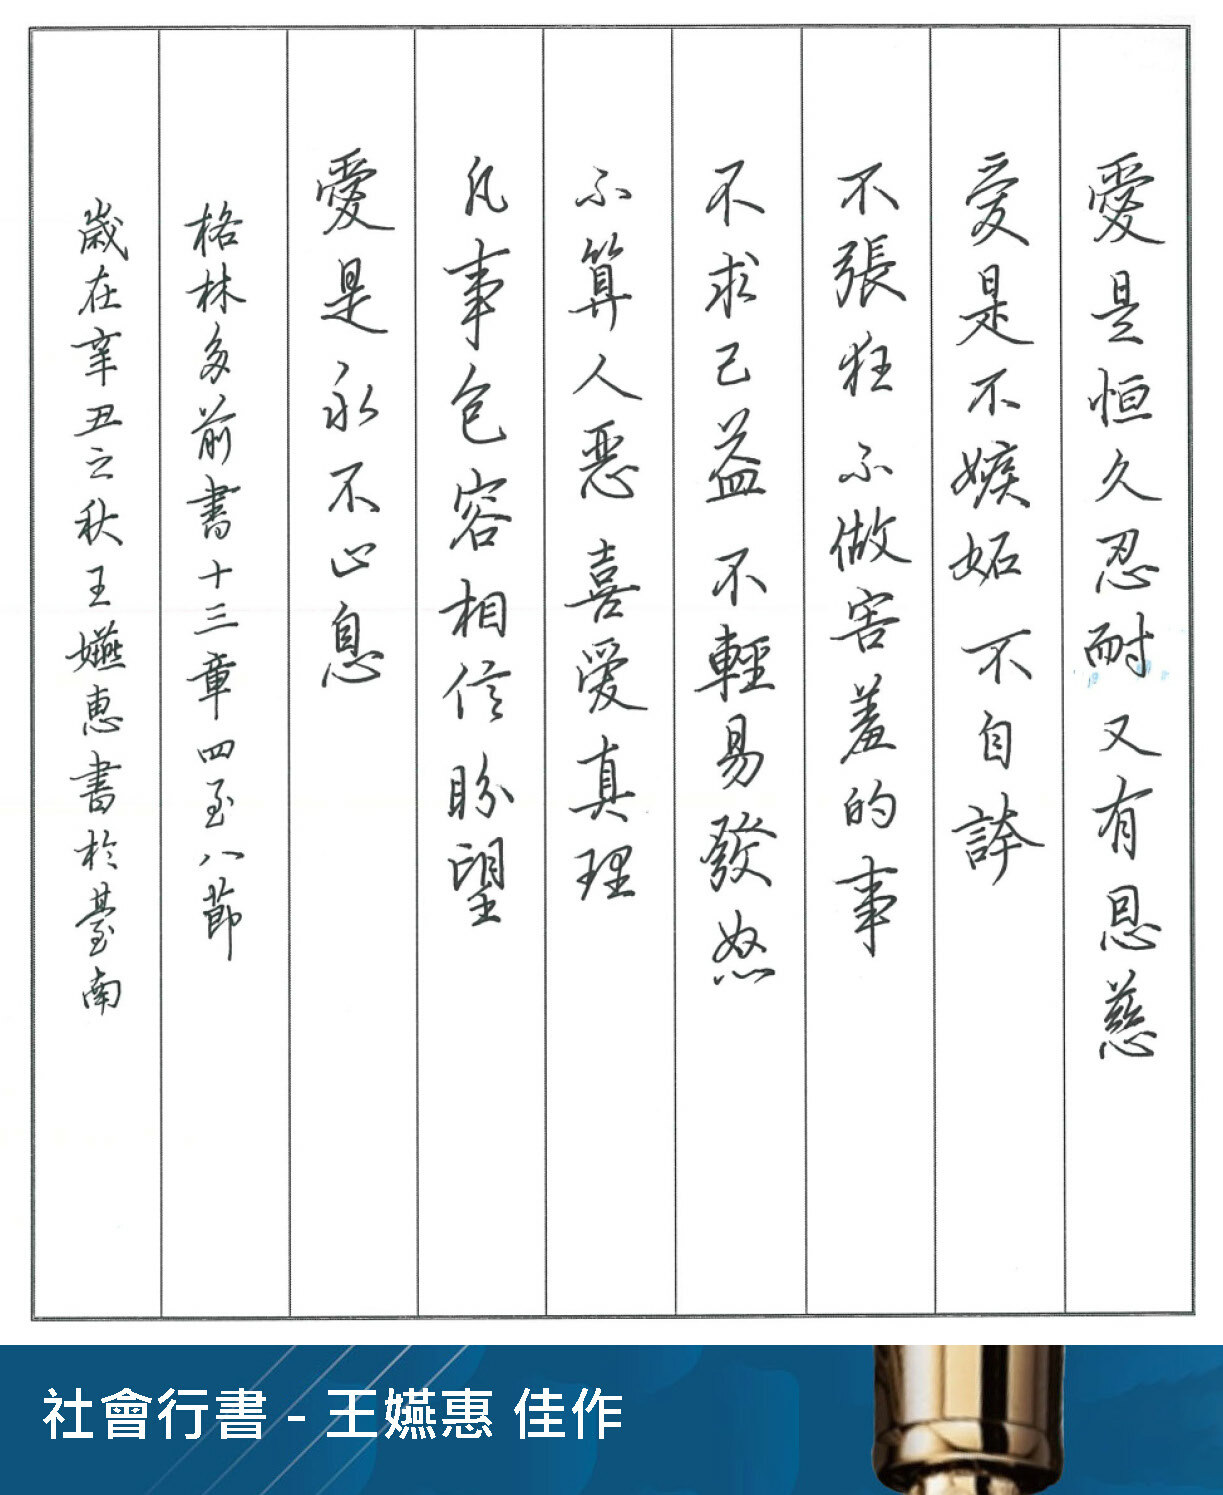 愛是恒久忍耐 又有恩慈
愛是不嫉妬 不自誇
不張狂 不做害羞的事
不求己益 不輕易發怒
不算人惡 喜愛真理
凡事包容相信盼望
愛是永不止息
格林多前書十三章四至八節
歲在辛丑之秋王嬿惠書於臺南
社會行書 - 王嬿惠 佳作